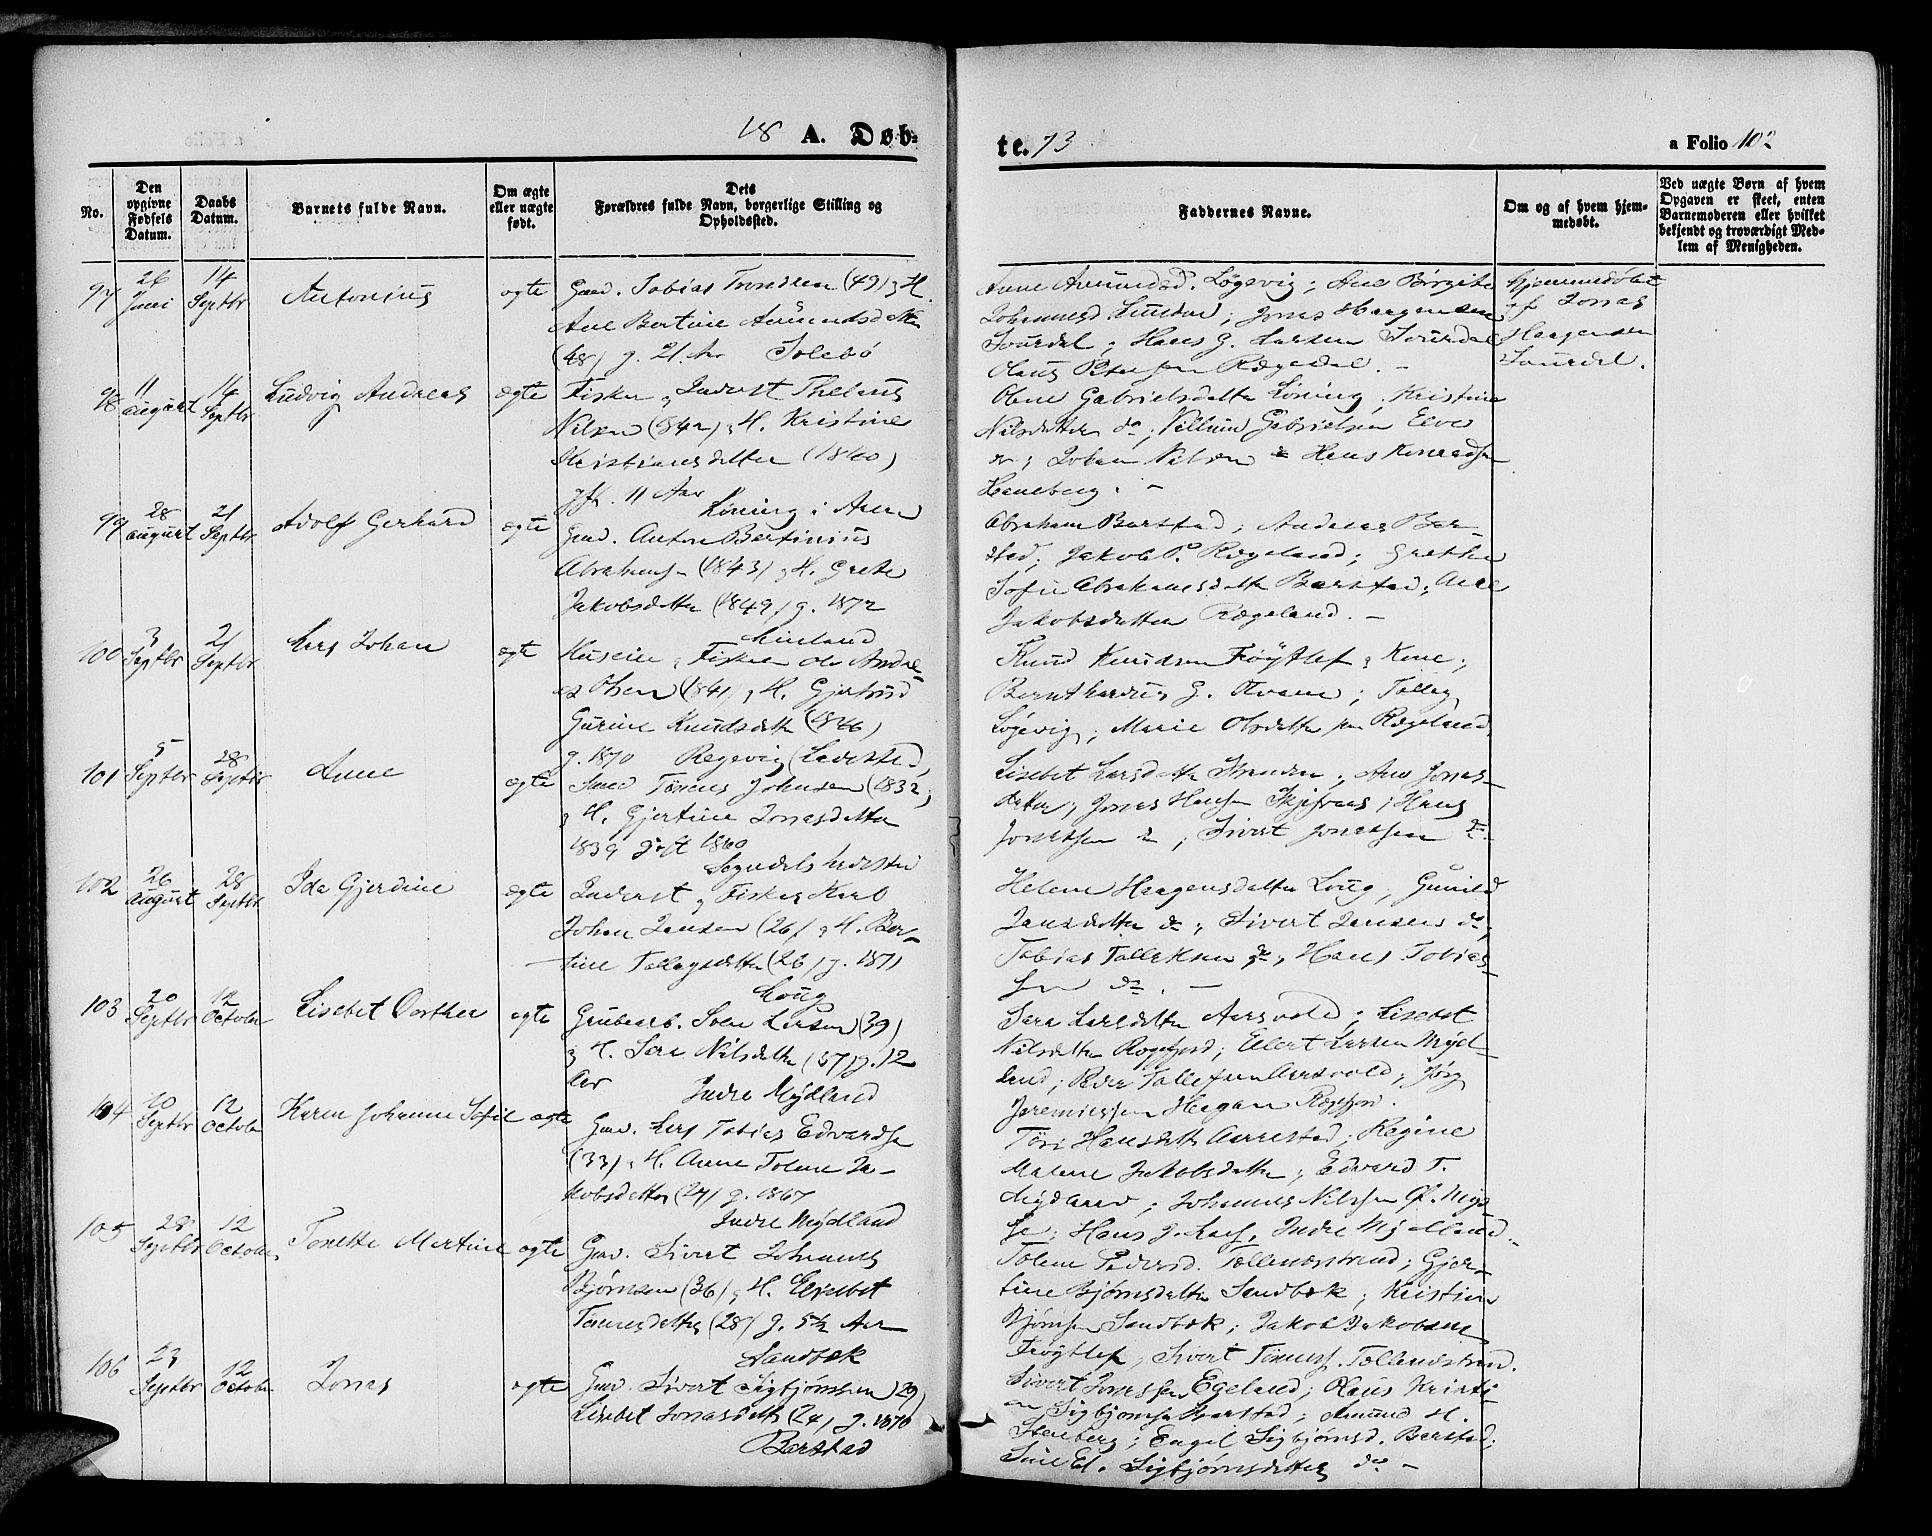 18 A. Døb-
te. 73
a Folio 102
No.
Den opgivne Fødsels Datum.
Daabs Datum.
Barnets fulde Navn.
Om ægte eller uægte født.
Dets Forældres fulde Navn, borgerlige Stilling og Opholdssted.
Faddernes Navne.
Om og af hvem hjemmedøbt.
Ved uægte Børn af hvem Opgaven er skeet, enten Barnemoderen eller hvilket bekjendt og troværdigt Medlem af Menigheden.
97
26 Juni
14 Septbr
Antonius
ægte
Gmd. Tobias Trondsen (49) & H.
Ane Bertine
(48) g. 21 Aar Solebø
Løgevig; Ane Birgite
Jonas Haagensen
Sourdal; Hans G. Larsen Sourdal
Rægedal. -
Hjemmedøbt
af Jonas
Haagensen
Sourdal.
98
11 August
14 Septbr
Ludvig Andreas
ægte
Fisker & Inderst Theleus
Nilsen (1842) & H. Kristine
Kristiansdatter (1860)
gft. 11 Aar
Løning i Aana
Gabrielsdatter Løning; Kristine
Nilsdatter do; Villum Gabrielsen Elve
do; Johan Nilsen & Hans Konradsen
Haneberg. -
99
28 August
21 Septbr
Adolf Gerhard
ægte
Gmd. Anton Bertinius
Abrahamsen (1843) & H. Grete
Jakobsdatter (1849) g. 1872
Abraham Barstad; Andreas Bar-
stad; Jakob P. Rægeland; Grethe
Sofie Abrahamsdatter Barstad; Ane
Jakobsdatter Rægeland. -
100
3 Septbr
21 Septbr
Lars Johan
ægte
Huseier & Fisker Ole Andre-
as Olsen (1841) & H. Gjertrud
Gurine Knudsdatter (1846)
g. 1870 Regevig (Ladested)
Knud Knudsen Frøytlef & Kone;
Bernthardus G. Tolleg
Løgevig; Marie Olsdatter Rægeland
101
5 Septbr
28 Septbr
Anne
ægte
Smed Tønnes Johnsen (1832)
& H. Gjertine Jonasdatter
1839 gift 1860
Sogndals Ladested
Lisebet Larsdatter Stranden; Ane Jonas-
datter; Jonas Hansen Skjefraas; Hans
Jonassen do; Sivert Jonassen do
102
26 August
28 Septbr
Ida Gjerdine
ægte
Inderst & Fisker Karl
Johan Jansen (26) & H. Ber-
tine Tollagsdatter (26) g. 1871
Loug
Helene Haagensdatter Loug; Gunild
Jansdatter do; Sivert Jansen do;
Tobias Tolleksen do; Hans Tobias-
sen do. -
103
20 Septbr
12 Octobr
Lisebet Dorthea
ægte
Grubearb. Sven Larsen (39)
& H. Sara Nilsdatter (37) g. 12
Aar Indre Mydland
Sara Larsdatter Aarsvold; Lisebet
Nilsdatter Rægefjord; Elert Larsen Myd-
land; Peder Tollefsen Aarsvold; Jørg
Jeremiassen Haagan Rægefjord.
104
20 Septbr
12 Octobr
Karen Johanne Sofie
ægte
Gmd. Lars Tobias Edvardsen
(33) & H. Anne Tolene Ja-
kobsdatter (24) g. 1867
Indre Mydland
Tøri Hansdatter Aarrestad; Regine
Malene Jakobsdatter; Edvard T.
Mydland; Johannes Nilssen
Hans J. Indre Mydland.
105
28 Septbr
12 Octobr
Tonette Martine
ægte
Gmd. Sivert Johannes
Bjørnsen (36) & H. Elisebet
Tønnesdatter (28) g. 5½ Aar
Sandbæk
Tolene Pedersd. Tællendstrand; Gjer-
tine Bjørnsdatter Sandbæk; Kristian
Bjørnsen Sandbæk; Jakob Jakobsen
Frøytlef; Sivert Tønness. Tællendstrand.
106
23 Septbr
12 Octobr
Jonas
ægte
Gmd. Sivert Sigbjørnsen (29)
Lisebet Jonasdatter (24) g. 1870
Barstad
Sivert Jonassen Egeland; Olaus Kristi-
an Sigbjørnsen Barstad; Amund H.
Stenberg; Engel Sigbjørnsd. Barstad;
Sine El. Sigbjørnsdatter do -